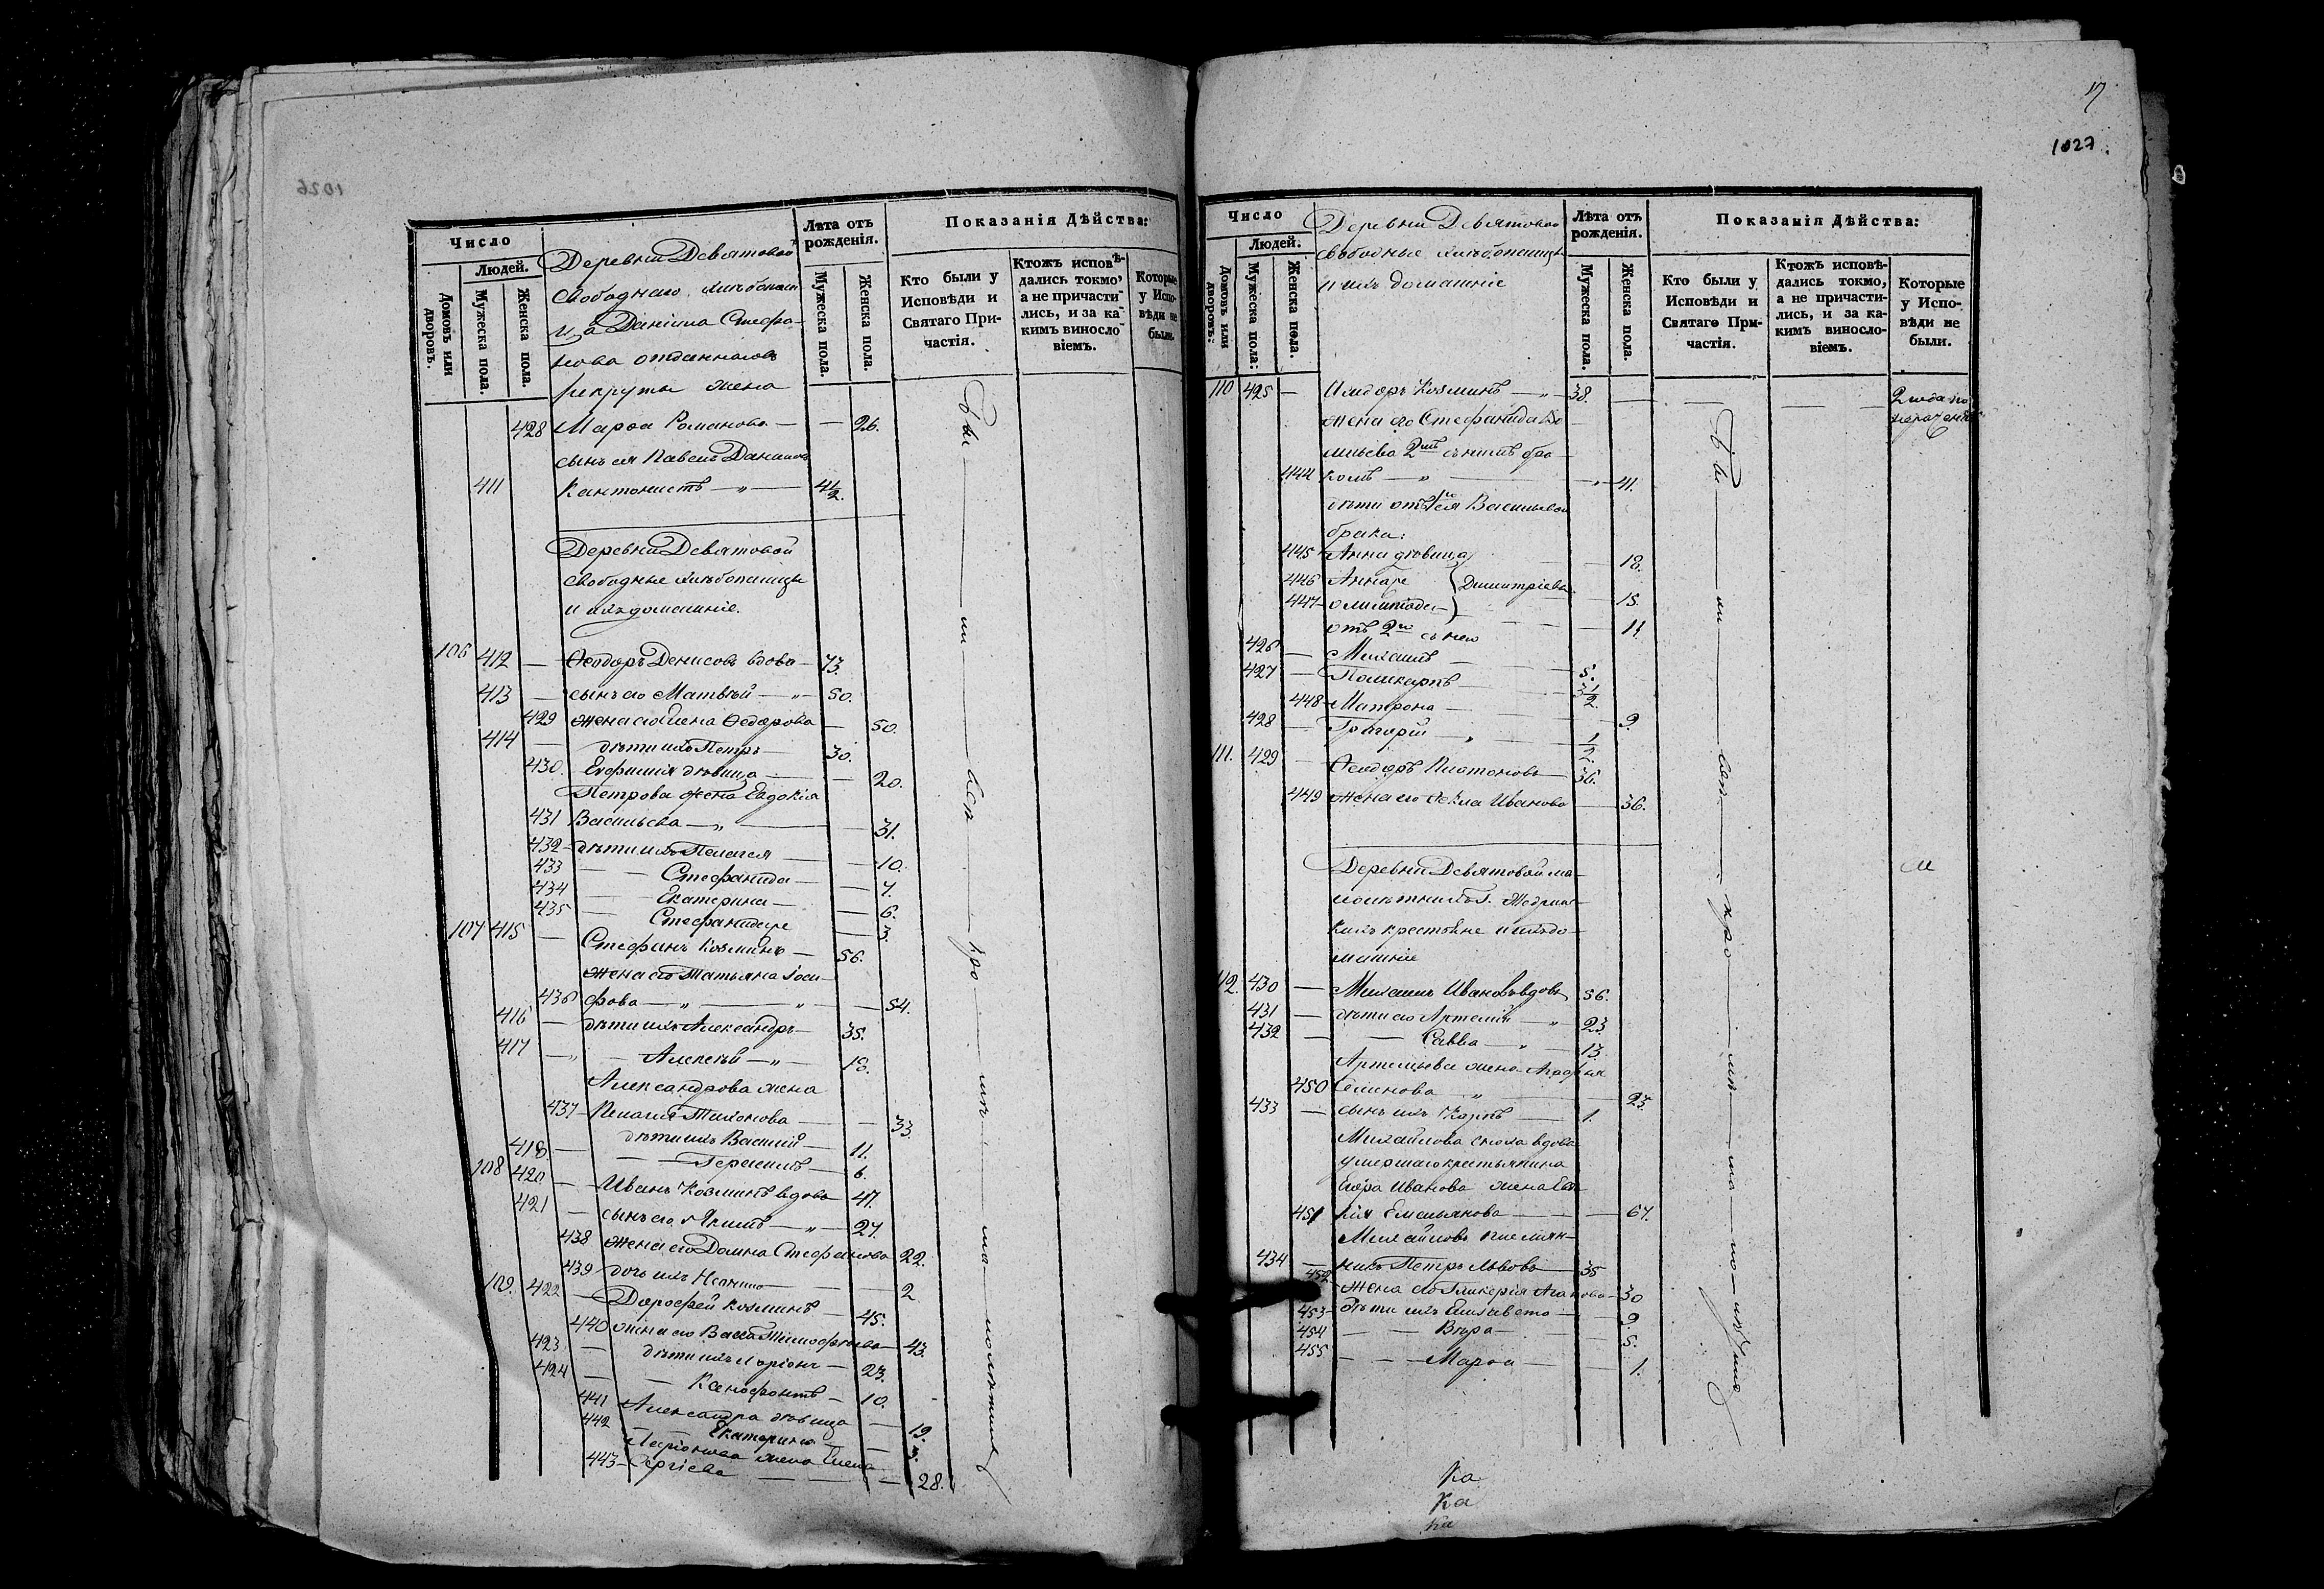 1026
Число
Людей.
Домовъ или дворовъ.
Мужеска пола.
Женска пола.
Деревни Девятовой
свободнаго хлѣбопаш
ца Данiила Стефа-
нова отданнаго въ
рекруты жена
Лѣта отъ рожденія.
Мужеска пола.
Женска пола.
Показанія Дѣйства:
Кто были у Исповѣди и Святаго Причастія.
Ктожъ исповѣдались токмо, а не причастились, и за какимъ винословіемъ.
Которые у Исповѣди не были.
428 Марѳа Романова — — 26.
сынъ ея Павелъ Даниловъ
411 Кантонистъ — „ — 4 1/2.
Деревни Девятовой
свободные хлѣбопашцы
и ихъ домашніе.
106 412 — Ѳеодоръ Денисовъ вдовъ — 73.
413 — сынъ его Матвѣй — „ — 50.
429 жена его Елена Ѳедорова — 50.
414 — дѣти ихъ Петръ — 30.
430. Евфимія дѣвица — — 20.
Петрова жена Евдокія
431 Васильева — „ — — 31.
432 — дѣти ихъ Пелагея — — 10.
433 — — Стефанида — — 7.
434 — Екатерина — — 6.
435 — Стефанида же — 3.
107 415 — Стефанъ Козминъ — 56.
жена его Татьяна Іоси-
436 фова — „ — „ — 54.
416 — дѣти ихъ Александръ — 35.
417 — „ — Алексѣй — „ — 18.
Александрова жена
437 — Пелагія Тихонова — — 33.
418 — дѣти ихъ Василій — 11.
— — Герасимъ — 6.
108 420 — Иванъ Козминъ вдовъ 47.
421 — сынъ его Якимъ — „ — 27.
438 жена его Домна Стефанова 22.
439 дочь ихъ — — 2.
109. 422 — Дорофей Козминъ — 45.
440 жена его Васса Тимофѣева — 43.
423 — дѣти ихъ Ларіонъ — 23.
424 — — Ксенофонтъ — 10.
441 Александра дѣвица — 19.
442 — Екатерина — — 3.
Ларіонова жена Елена
443 — Сергіева — — 28.
Бы — ли — вси — кро — мѣ — ма — лолѣтних
17
1027.
Число
Людей.
Домовъ или дворовъ:
Мужеска пола:
Женска пола.
Деревни Девятовой
свободные хлѣбопашцы
и ихъ домашніе
Лѣта отъ рожденія.
Мужеска пола.
Женска пола.
Показанія Дѣйства:
Кто были у Исповѣди и Святаго Причастія.
Ктожъ исповѣдались токмо, а не причастились, и за какимъ винословіемъ.
Которые у Исповѣди не были.
110 425 — Исидоръ Козминъ — „ — 38. — — — 2 года по
жена его Стефанида нераденію
2мъ съ нимъ бра-
444 комъ — „ — 41.
дѣти отъ 1го ея Васильевой
брака:
445 Анна дѣвица — 18.
446 Анна же Димитріевы 15.
447 — — 11.
отъ 2го съ нею
426 — Михаилъ — 5.
427 — Поликарпъ — 3 1/2.
448 — Матрона — 9.
428 — Григорій — „ — 1/2.
111. 429 — Ѳеодоръ Платоновъ 36.
449 жена его Ѳекла Иванова — 36.
Деревни Девятовой ма-
лолѣтнихъ Г.
кихъ крестьяне и ихъ до-
машніе
112. 430 — Михаилъ Ивановъ вдовъ 56.
431 — дѣти его Артемій — „ — 23.
432 — — Савва — „ — 13.
Артемьева жена Агафья
450 Семенова „ — 23.
433 — сынъ ихъ Карпъ — 1.
Михайлова сноха вдова
умершаго крестьянина
Егора Иванова жена Евдо
451 кія Емельянова — — 67.
Михайловъ племян-
434 — никъ Петръ Львовъ 35
452 — жена его Гликерія — 30
453 — дѣти ихъ Елизавета — 9.
454 — — Вѣра — 5.
455 — — Марѳа — 1.
Бы — ли — вси — кро — мѣ — ма — ло — лѣтних
Ка
Ка
Ка